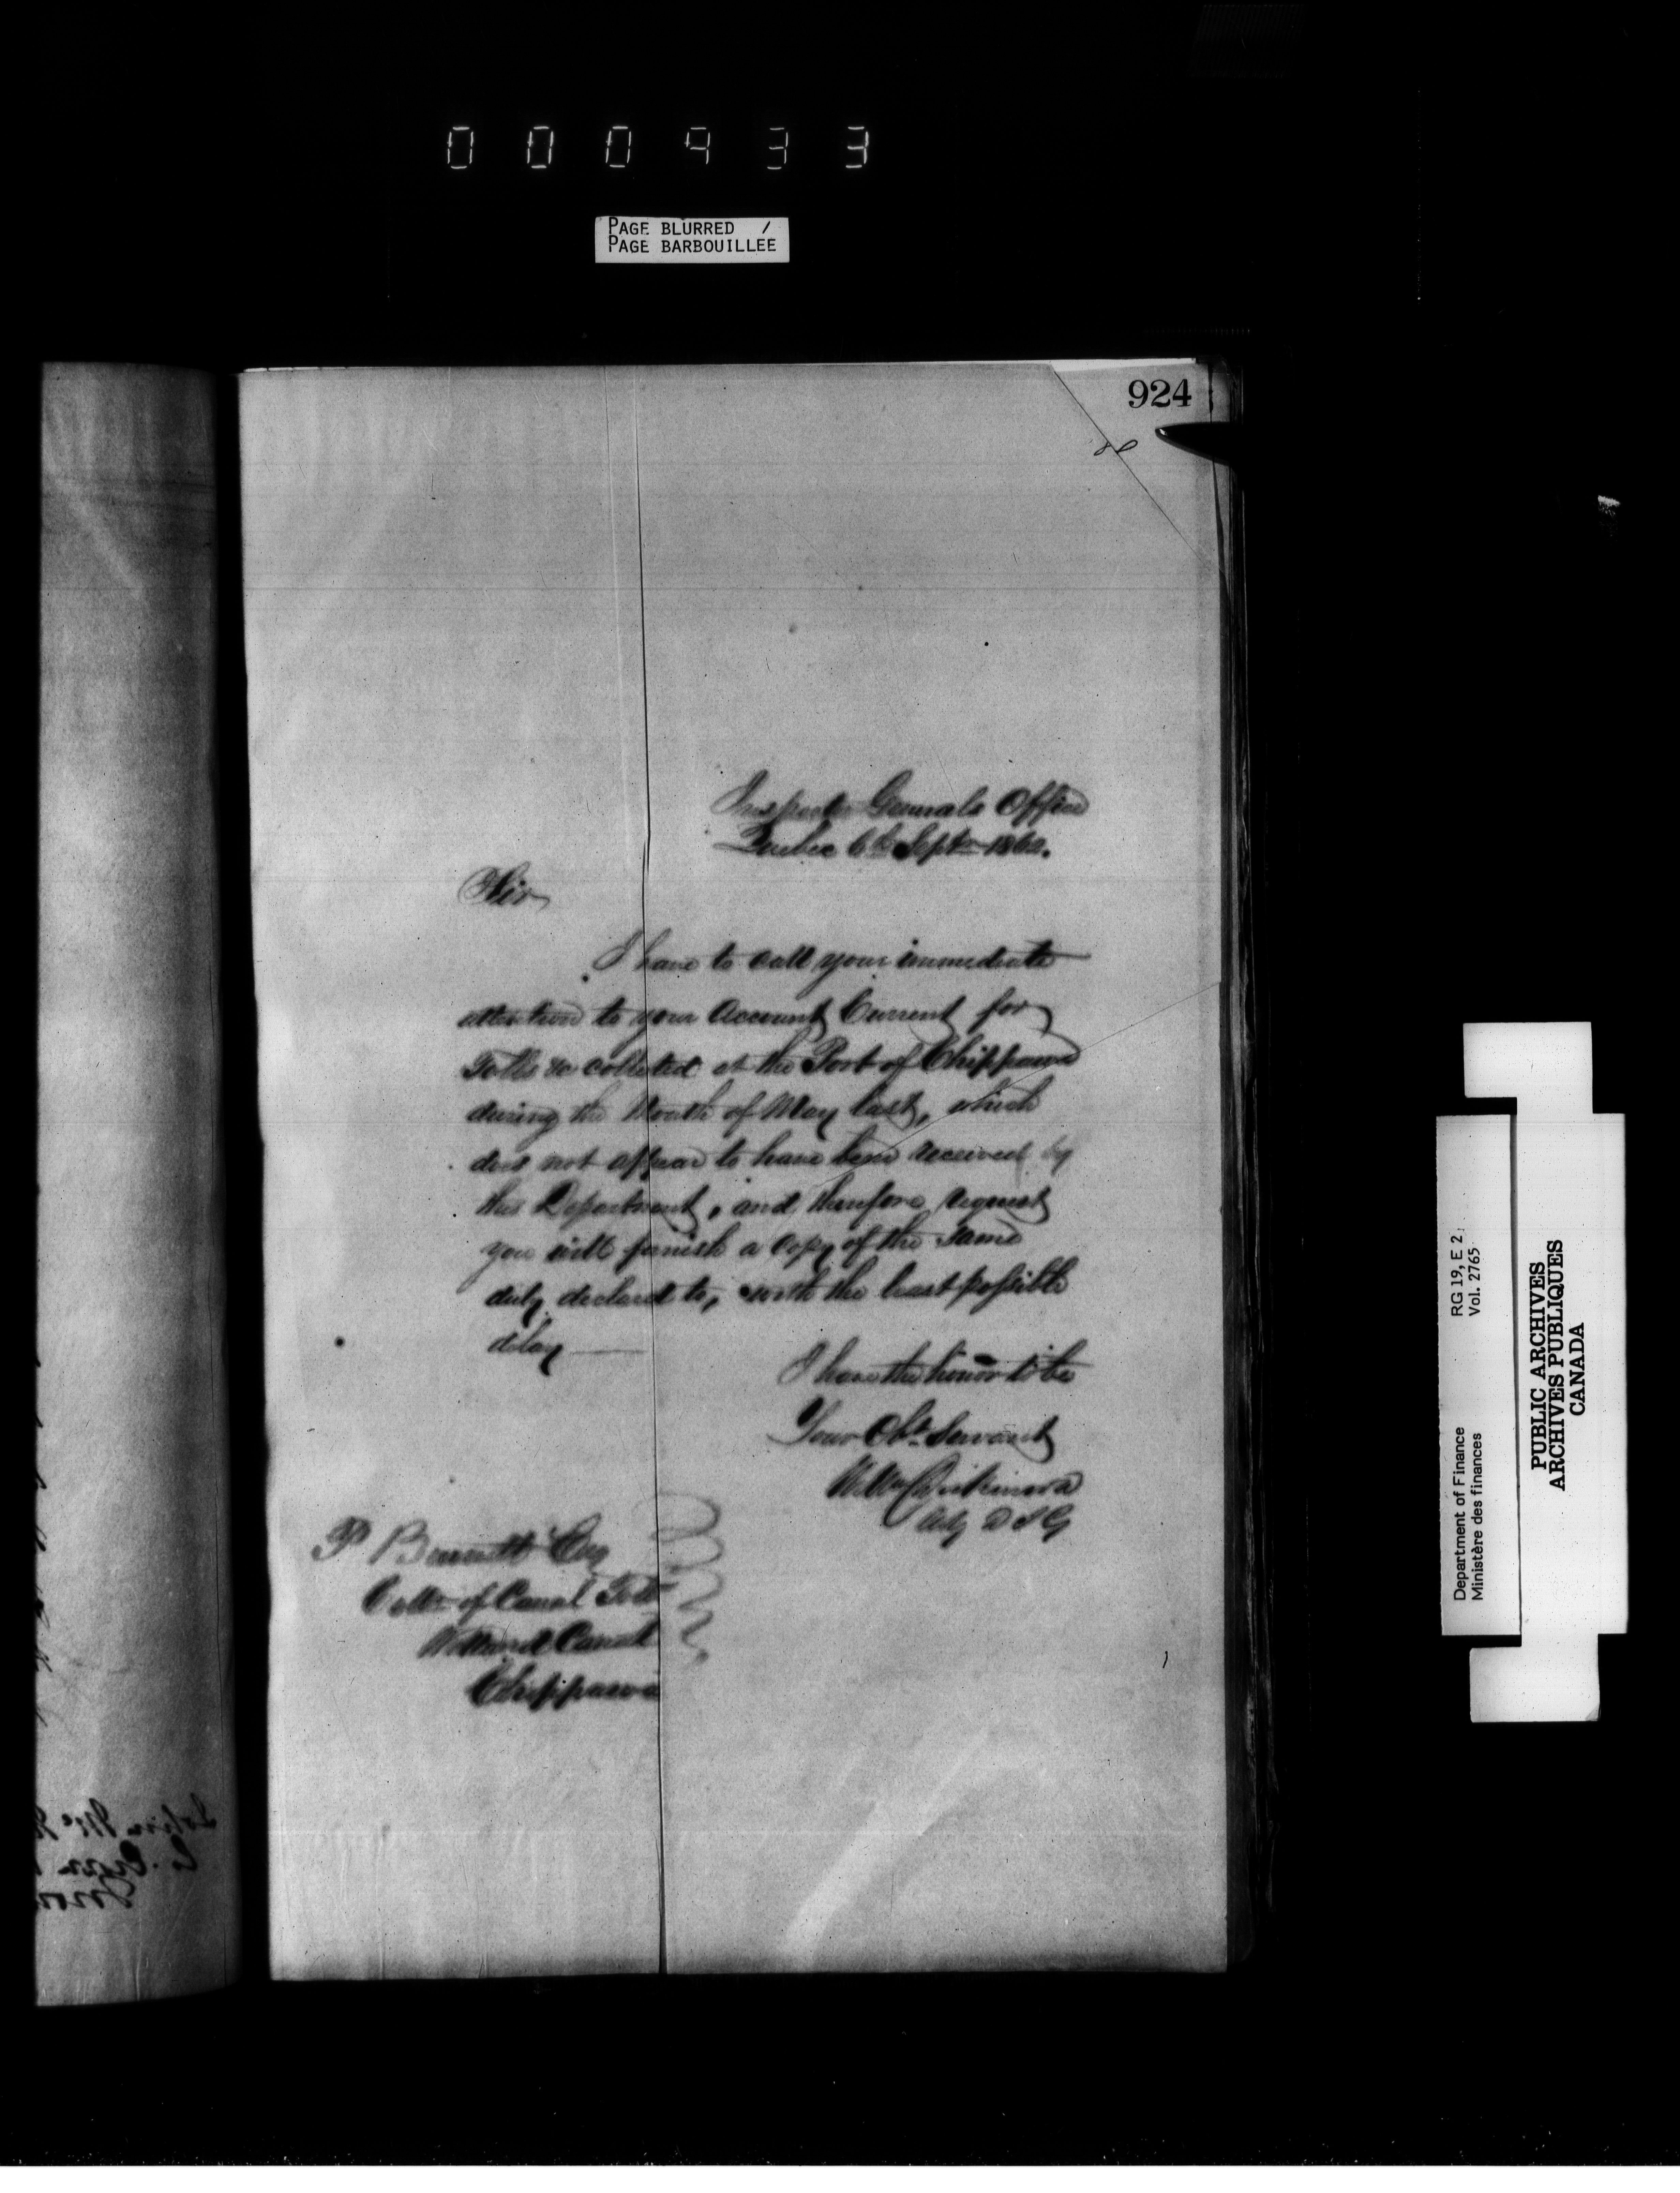 000933
PAGE BLURRED /
PAGE BARBOUILLEE
924
Inspector Generals Office
Quebec 6th Septr 1862.
Sir
I have to call your immediate
attention to your Account Current for
Tolls &c collected at the Port of Chippawa
during the Month of May last, which
does not appear to have been received by
this Department, and therefore request
you will furnish a Copy of the same
duly declared to, with the least possible
delay
I have the honor to be
Your Obt. Servant
Wm Dickinson
Actg D I G
P Bennett Esq
Collr of Canal Tolls
Welland Canal
Chippawa
RG 19, E 2,
Vol. 2765
Department of Finance
Ministère des finances
PUBLIC ARCHIVES
ARCHIVES PUBLIQUES
CANADA